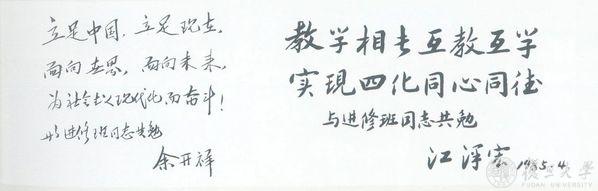 立足中国，立足现在，
面向世界，面向未来，
为社会主义现代化而奋斗！
与进修班同志共勉
余开祥
教学相长互教互学
实现四化同心同德
与进修班同志共勉
江泽宏 1985.4.
复旦大学
FUDAN UNIVERSITY